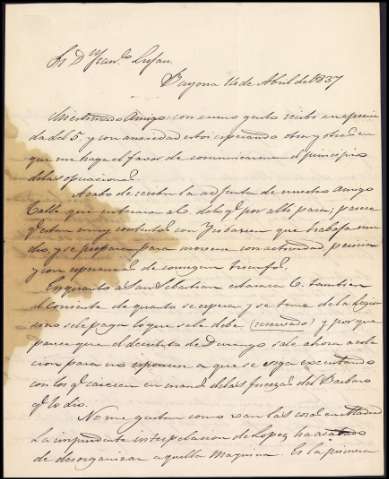 Sr Dn Franco Lujan
Bayona 14 de Abril de 1837
Mi estimado Amigo: con sumo gusto recibi su aprecia
da del 5 y con ansiedad estoi esperando otra y otras en
que me haga el favor de comunicarme el principio
de las operaciones
Acabo de recibir la adjunta de nuestro Amigo
que enterara a V. de lo q.e por alli pasa; parece
q.e estan muy contentos con que trabaja mu
cho, y se prepara para moverse con actividad
y con esperanzas de conseguir triunfos.
En quanto a San Sebastian estara V. tambien
al corriente de quanto se espera y se teme de la Legion
sino se le paga lo que se le debe (reservado) y por que
parece que el decreto de Durango sale ahora a
para no esponerse a que se siga executando
con los q.e caiesen en manos de las fuerzas del Barbaro
q.e lo dio.
No me gustan como van las cosas en Madrid
La imprudente interpelacion de Lopez ha
de desorganizar aquella Maquina. Es la primera